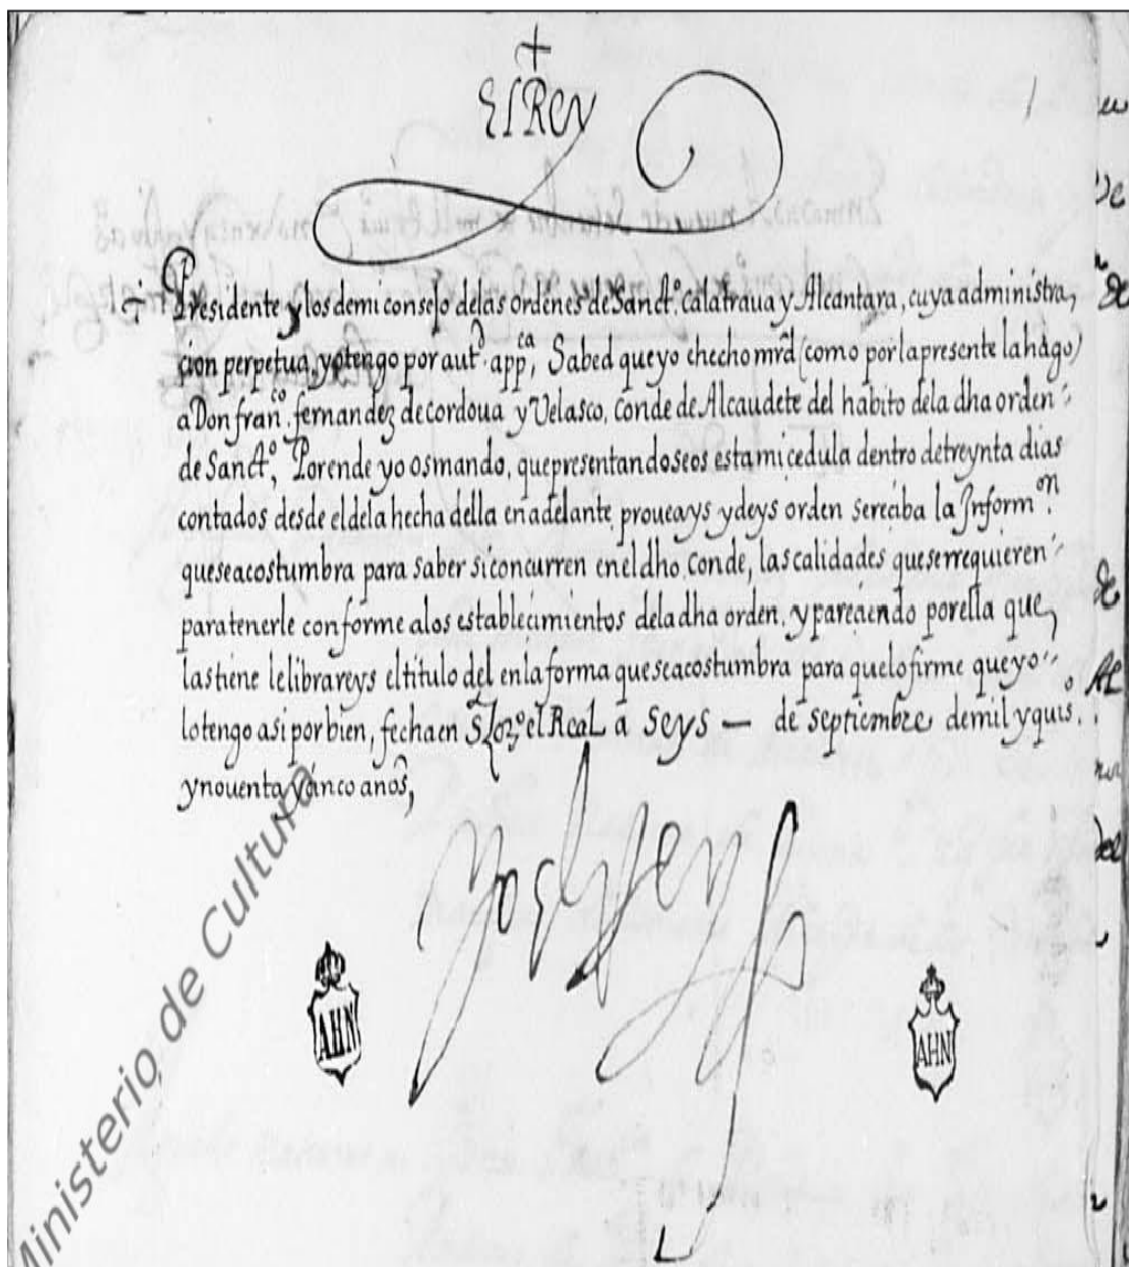 +
El Rey
1
Presidente y los de mi consejo de las ordenes de Sanct.º, calatraua y Alcantara, cuya administra,
cion perpetua, yo tengo por aut.d app.ca, Sabed que yo e hecho mrd (como por la presente la hago)
a Don fran.co fernandez de cordoua y Velasco, conde de Alcaudete del habito de la dha orden
de Sanct.º, Porende yo os mando, que presentandoseos esta mi cedula dentro de treynta dias
contados desde el de la hecha della en adelante, proueays y deys orden se reciba la Inform.on
que se acostumbra para saber si concurren en el dho. Conde, las calidades que se rrequieren
para tenerle conforme a los establecimientos de la dha orden, y pareciendo por ella que,
las tiene le librareys el titulo del en la forma que se acostumbra para que lo firme que yo
lo tengo asi por bien, fecha en S. Lor.º el Real a Seys — de septiembre de mil y quis.º
y nouenta y cinco años,
Yo el Rey
AHN
AHN
Ministerio de Cultura
de
de
Al
del